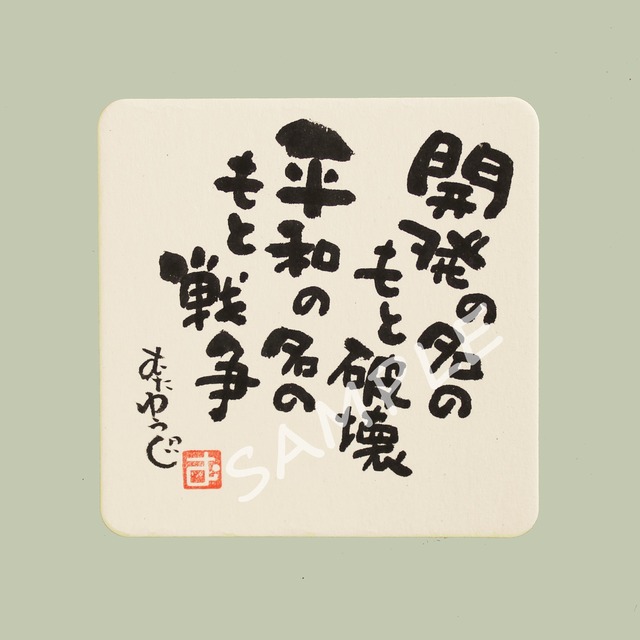 開発の名の
もと破壊
平和の名の
もと
戦争
むたゆうじ
む
SAMPLE